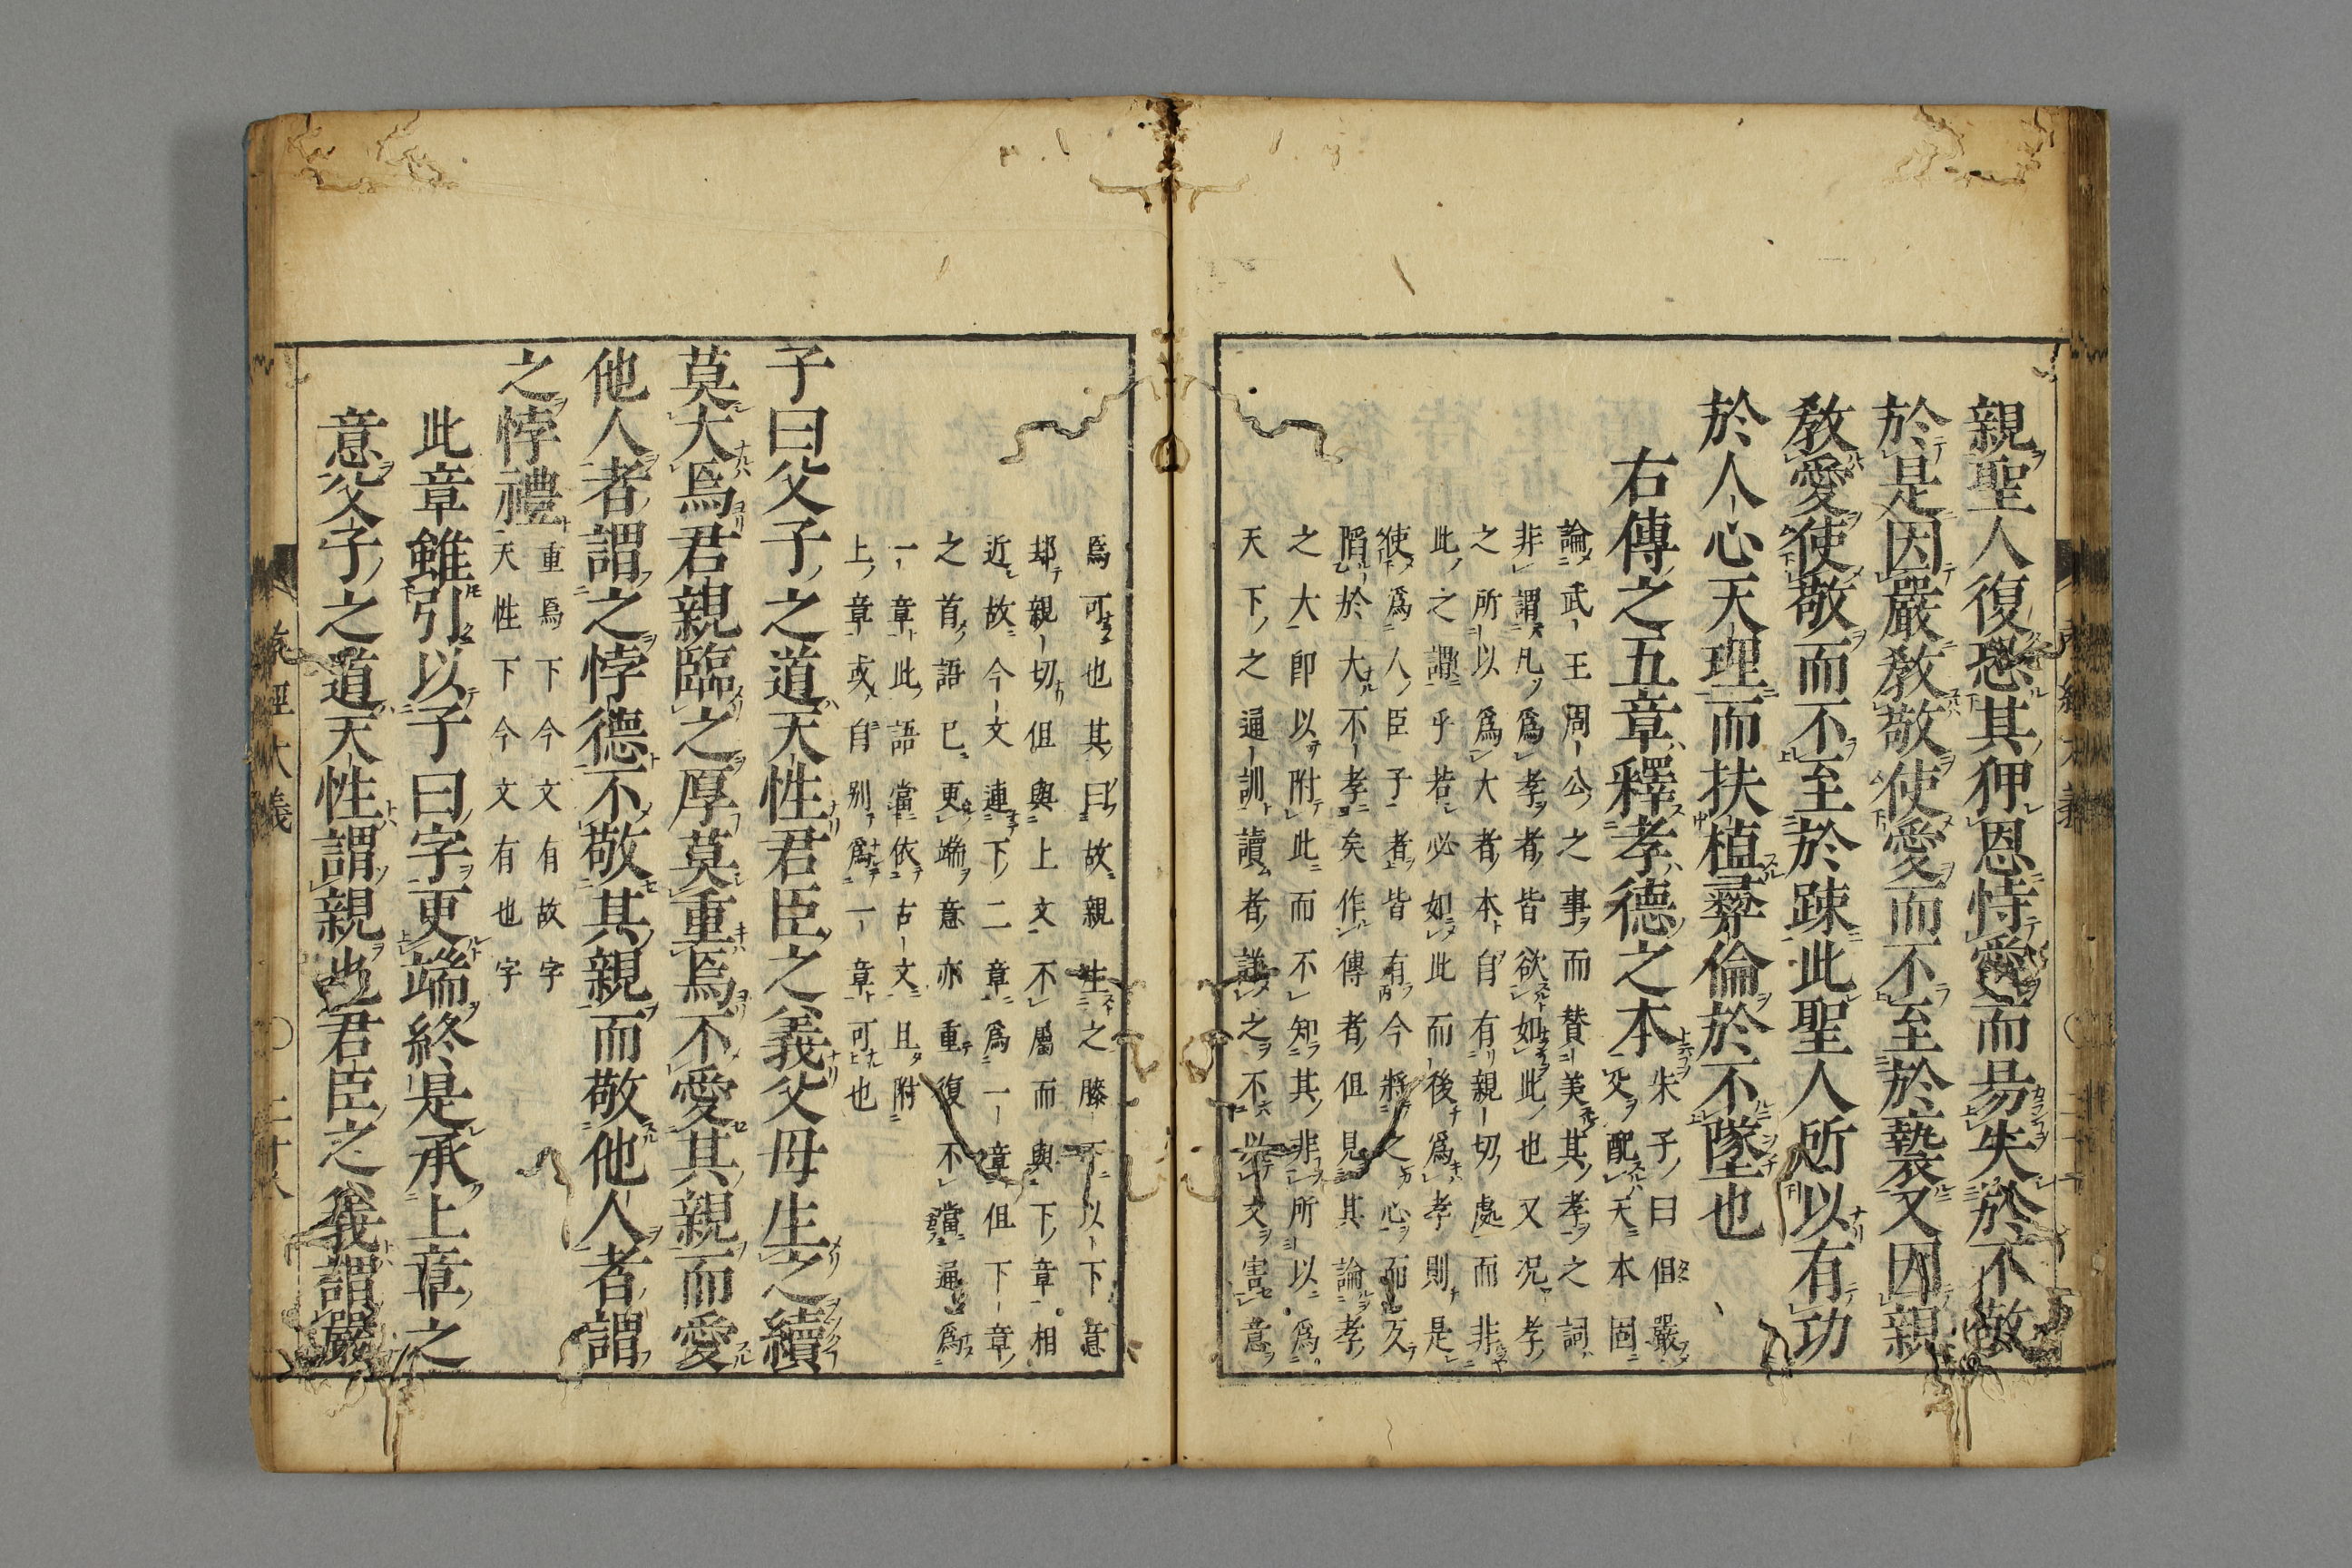 親聖人復恐其狎恩恃愛而易失於不敬
於是因嚴教敬使愛而不至於褻又因親
教愛使敬而不至於踈此聖人所以有功
於人心天理而扶植彛倫於不墜也
右傳之五章釋孝德之本
朱子曰但嚴
父配天本固
論武王周公之事而賛美其孝之詞
非謂凡爲孝者皆欲如此也又况孝
之所以爲大者本自有親切處而非
此之謂乎若必如此而後爲孝則是
使爲人臣子者皆有今將之心而反
陷於大不孝矣作傳者但見其論孝
之大即以附此而不知其非所以爲
天下之通訓讀者詳之不以文害意
焉可也其曰故親生之膝下以下意
却親切但與上文不屬而與下章相
近故今文連下二章爲一章但下章
之首語已更端意亦重復不當通爲
一章此語當依古文且附
上章或自別爲一章可也
子曰父子之道天性君臣之義父母生之續
莫大焉君親臨之厚莫重焉不愛其親而愛
他人者謂之悖德不敬其親而敬他人者謂
之悖禮
重焉下今文有故字
天性下今文有也字
此章雖引以子曰字更端終是承上章之
意父子之道天性謂親也君臣之義謂嚴
孝經大義